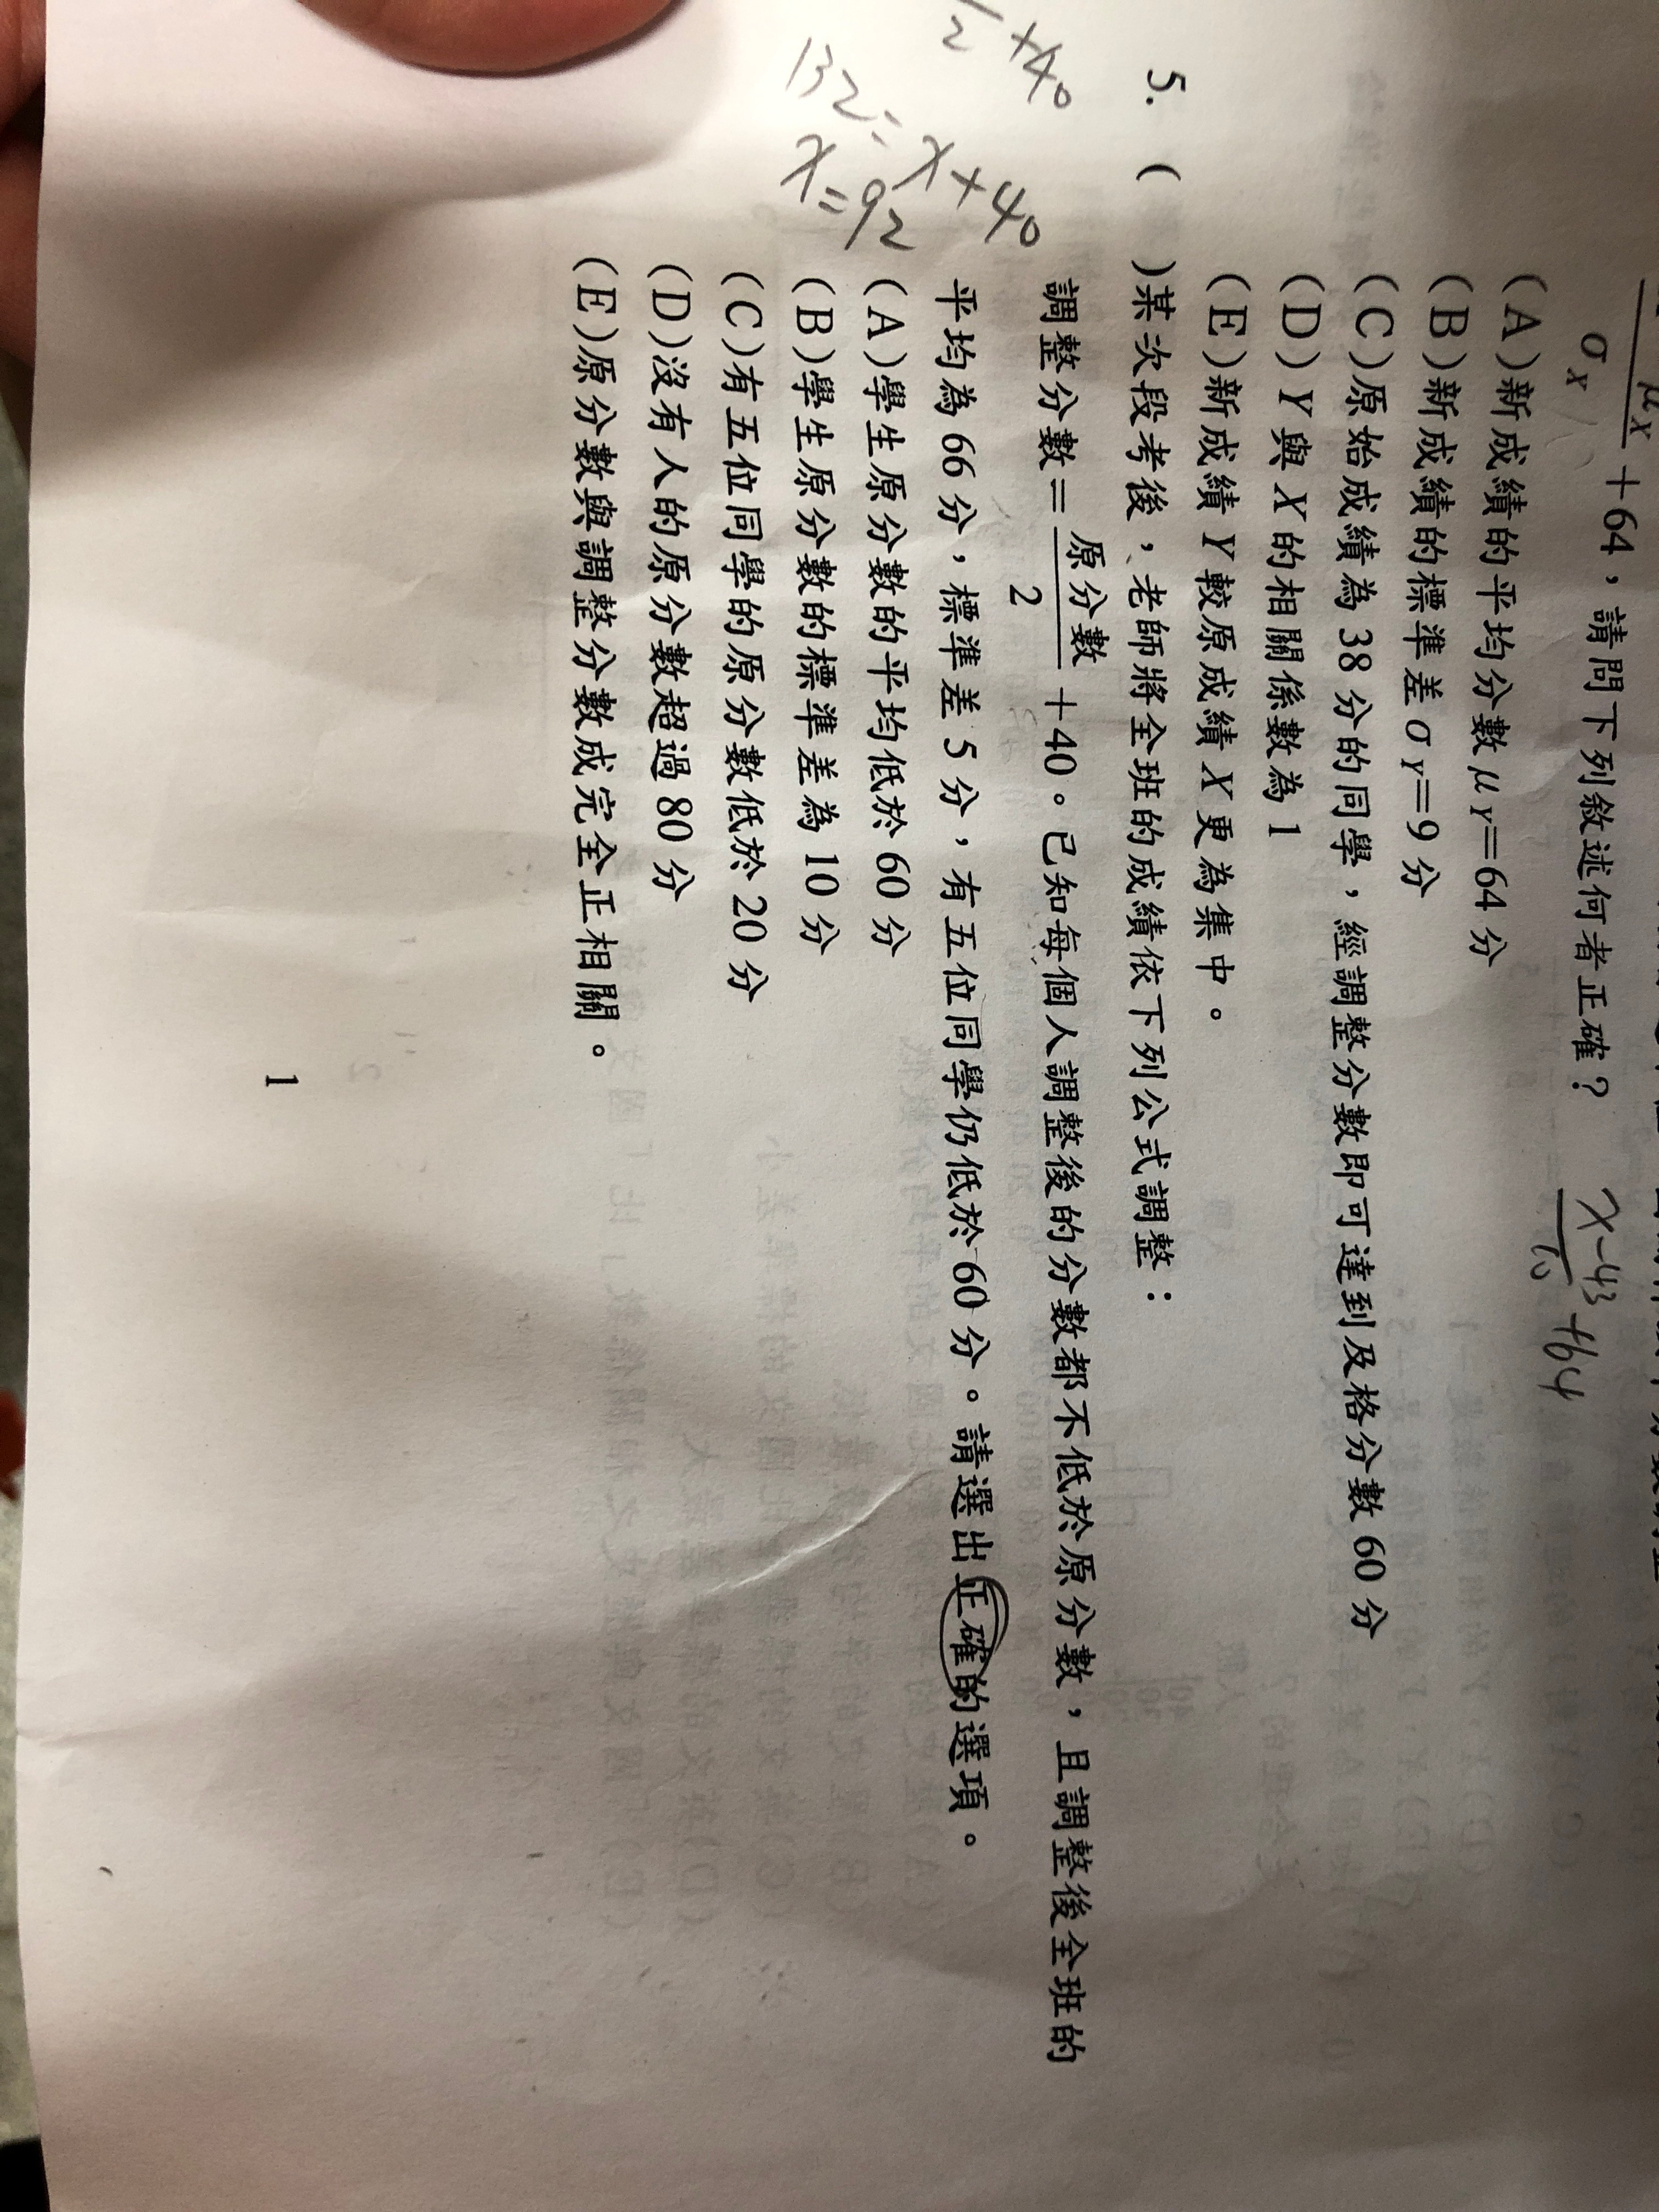 μX
σX
+64,請問下列敘述何者正確?
x-43
10
+64
(A)新成績的平均分數μY=64分
(B)新成績的標準差σY=9分
(C)原始成績為38分的同學,經調整分數即可達到及格分數60分
(D)Y與X的相關係數為1
(E)新成績Y較原成績X更為集中。
5. ( )某次段考後,老師將全班的成績依下列公式調整:
調整分數=原分數/2+40。已知每個人調整後的分數都不低於原分數,且調整後全班的
平均為66分,標準差5分,有五位同學仍低於60分。請選出正確的選項。
(A)學生原分數的平均低於60分
(B)學生原分數的標準差為10分
(C)有五位同學的原分數低於20分
(D)沒有人的原分數超過80分
(E)原分數與調整分數成完全正相關。
2
+40
132=x+40
x=92
1